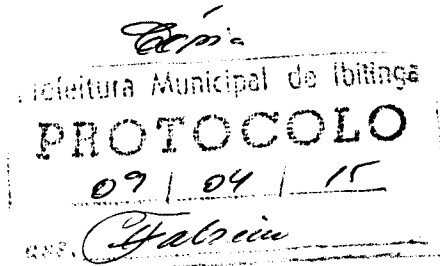 Cópia
Prefeitura Municipal de Ibitinga
PROTOCOLO
09 / 04 / 15